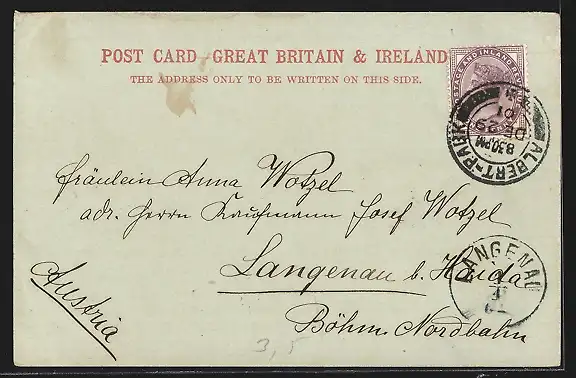 POST CARD GREAT BRITAIN & IRELAND
THE ADDRESS ONLY TO BE WRITTEN ON THIS SIDE.
POSTAGE AND INLAND REVENUE
ALBERT-PARK
8.30PM
DE 29
01
Fräulein Anna Wotzel
adr. Herrn Kaufmann Josef Wotzel
Langenau b. Haida
LANGENAU
Austria
Böhm. Nordbahn
3,5